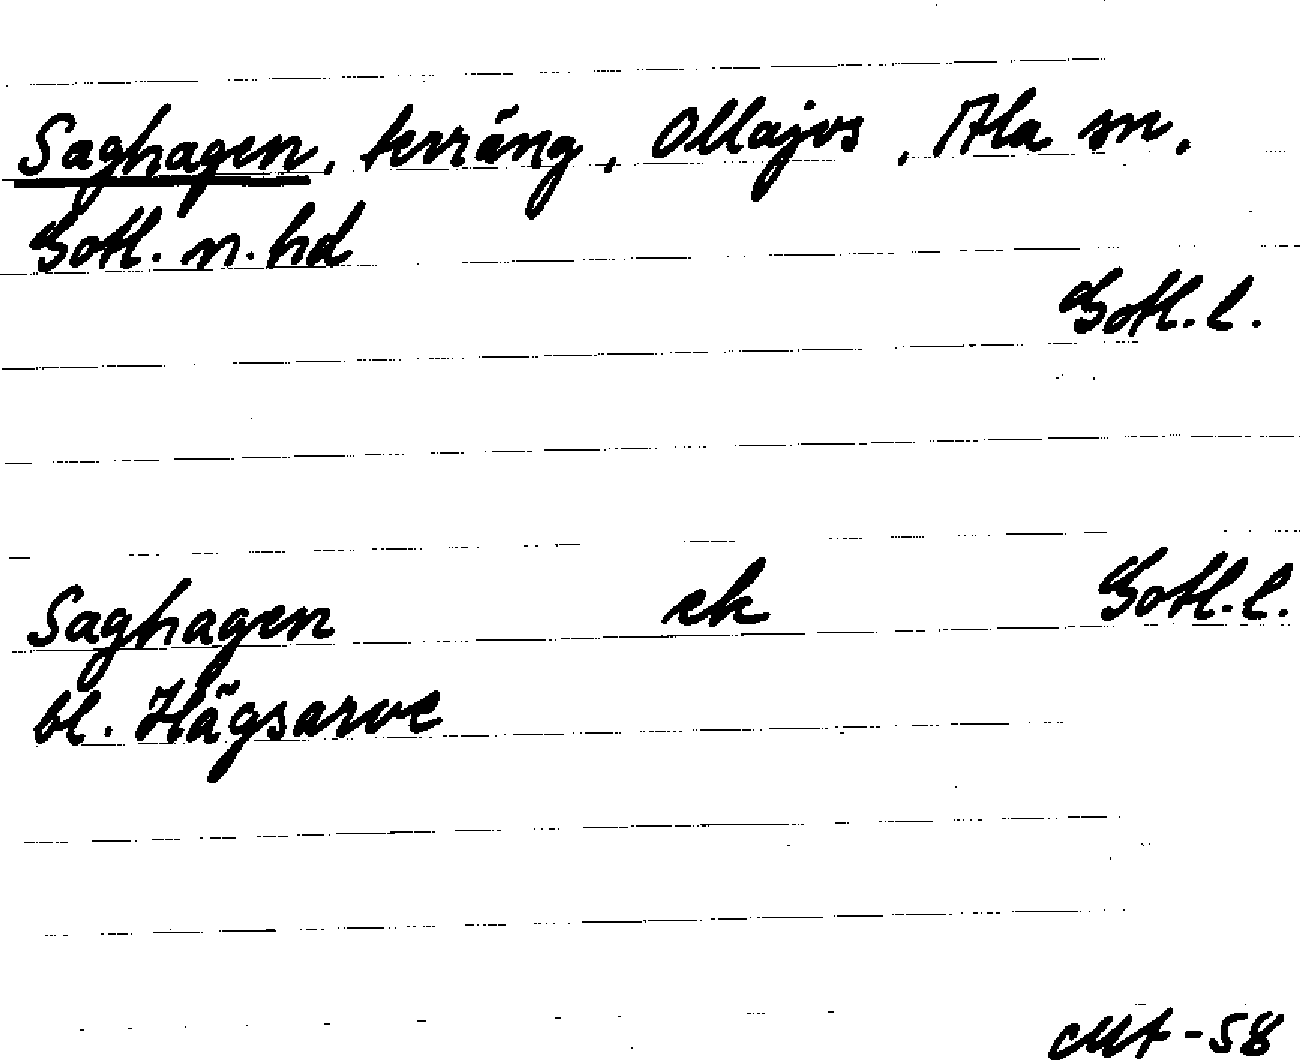 Saghagen, terräng, Ollajvs, Ala sn,
Gotl. n. hd
Gotl. l.
Saghagen ek Gotl. l.
bl. Hägsarve
Mt-58